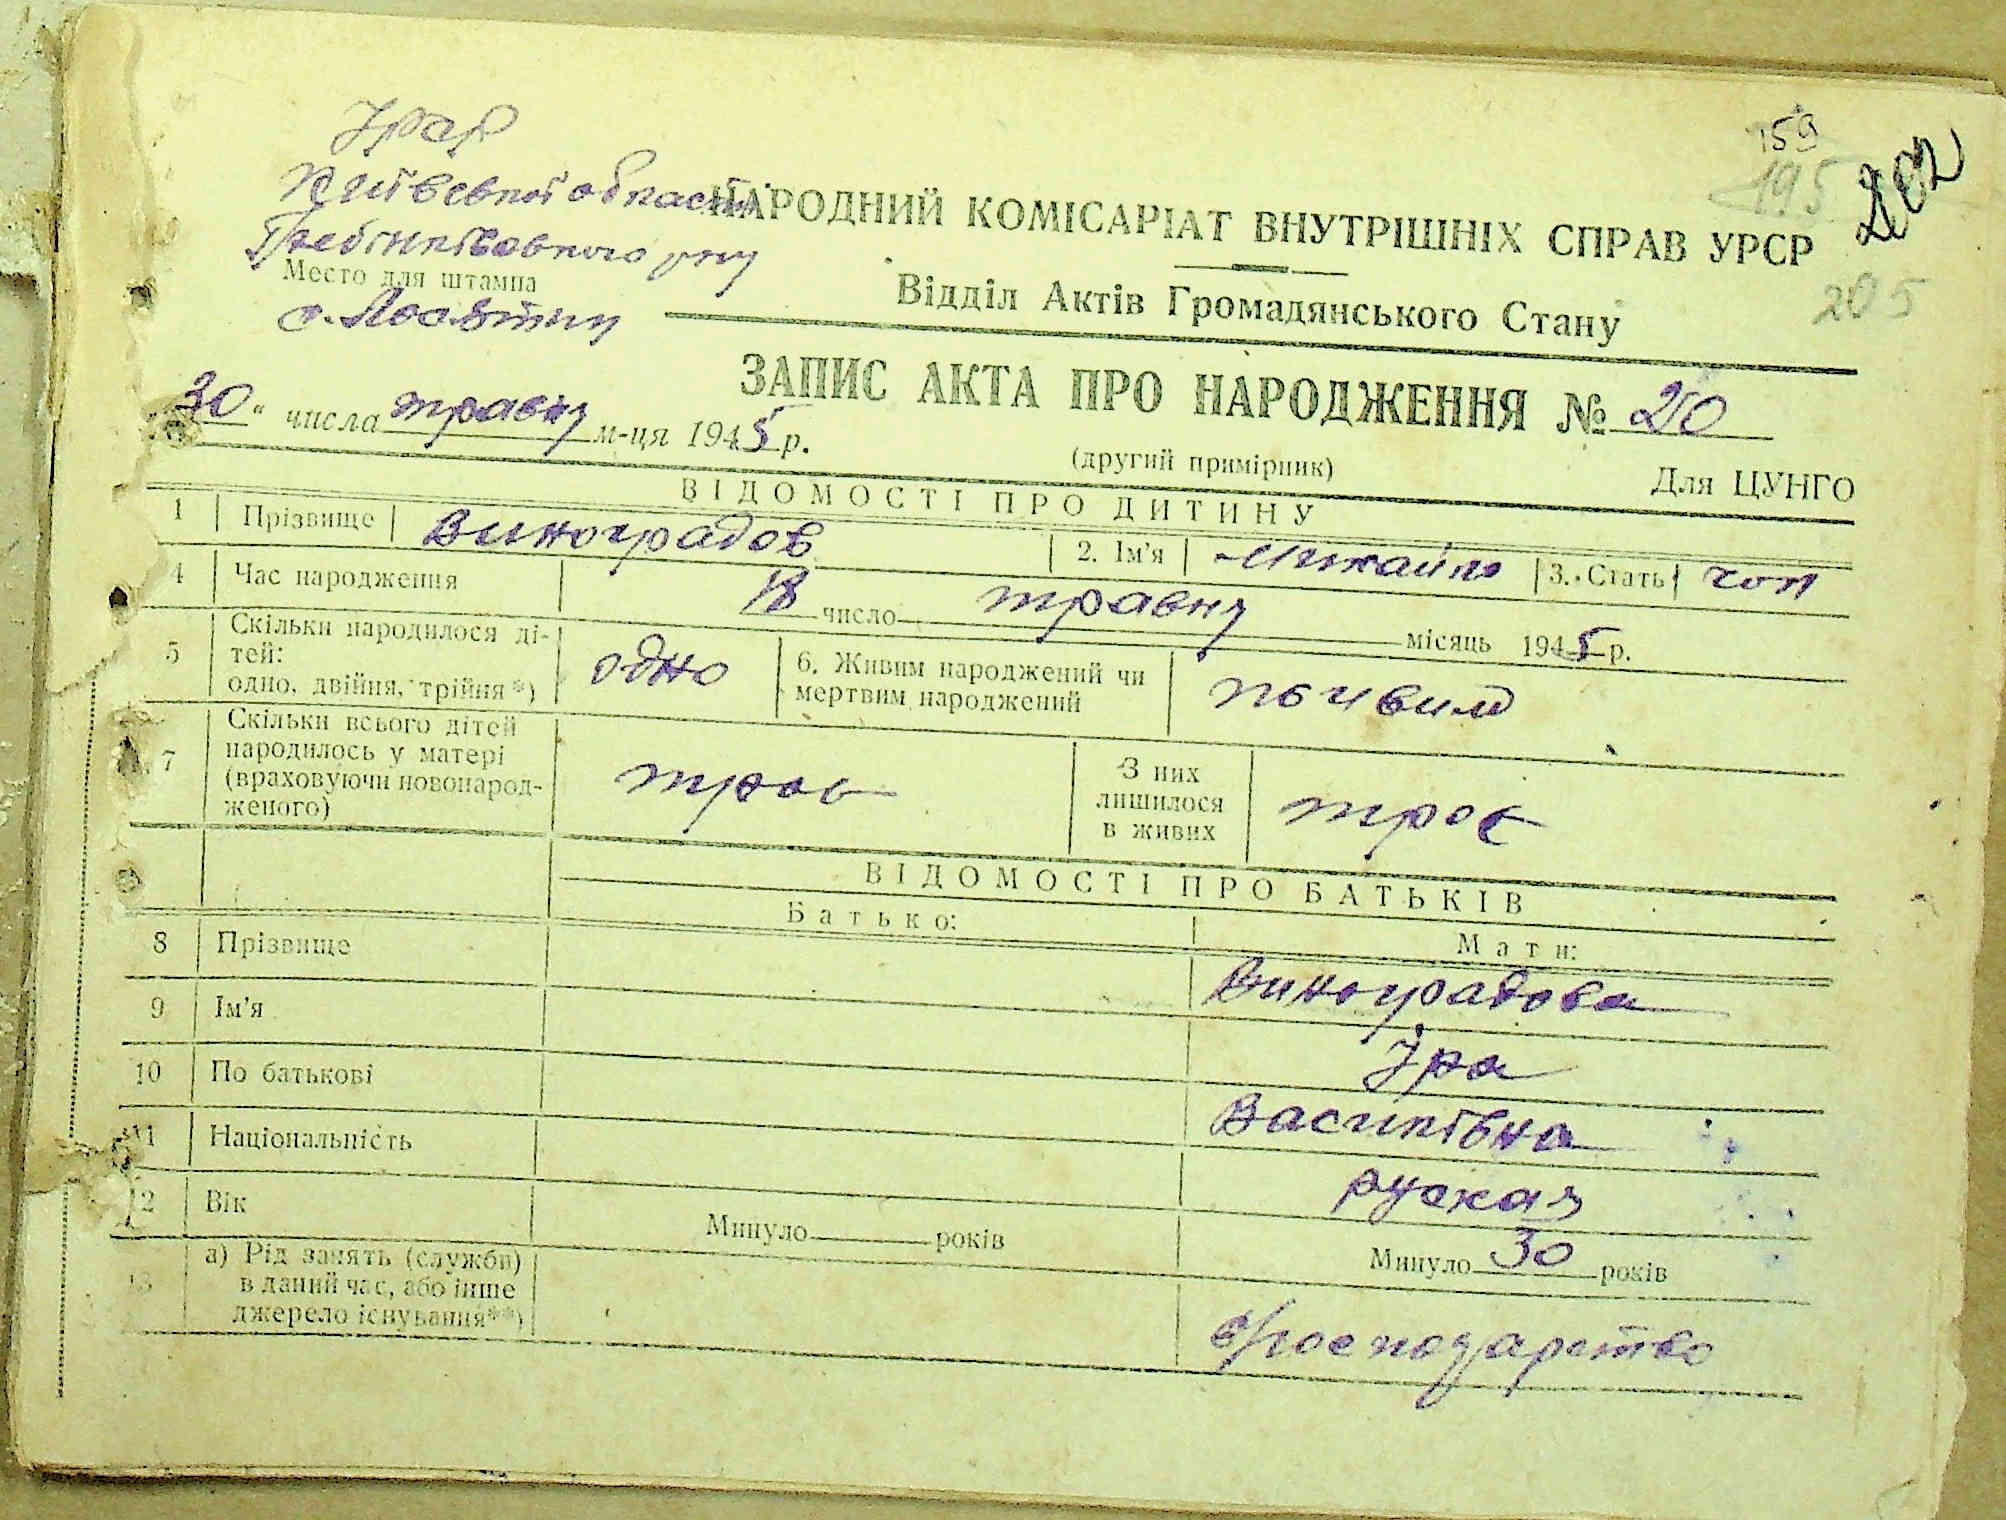 УРСР
159
Київської області
195
202
НАРОДНИЙ КОМІСАРІАТ ВНУТРІШНІХ СПРАВ УРСР
Гребінківського р-ну
Место для штампа
Відділ Актів Громадянського Стану
205
с. Ловятин
ЗАПИС АКТА ПРО НАРОДЖЕННЯ № 20
30" числа травня м-ця 1945 р.
(другий примірник)
Для ЦУНГО
ВІДОМОСТІ ПРО ДИТИНУ
1 Прізвище Виноградов 2. Ім'я Михайло 3. Стать чол
4 Час народження 18 число травня місяць 1945 р.
5 Скільки народилося ді-
тей:
одно, двійня, трійня*) одно 6. Живим народжений чи
мертвим народжений живим
7 Скільки всього дітей
народилось у матері
(враховуючи новонарод-
женого) троє З них
лишилося
в живих троє
ВІДОМОСТІ ПРО БАТЬКІВ
Батько: Мати:
8 Прізвище Виноградова
9 Ім'я Іра
10 По батькові Василівна
11 Національність руская
12 Вік Минуло років Минуло 30 років
13 а) Рід занять (служби)
в даний час, або інше
джерело існування**) господарство